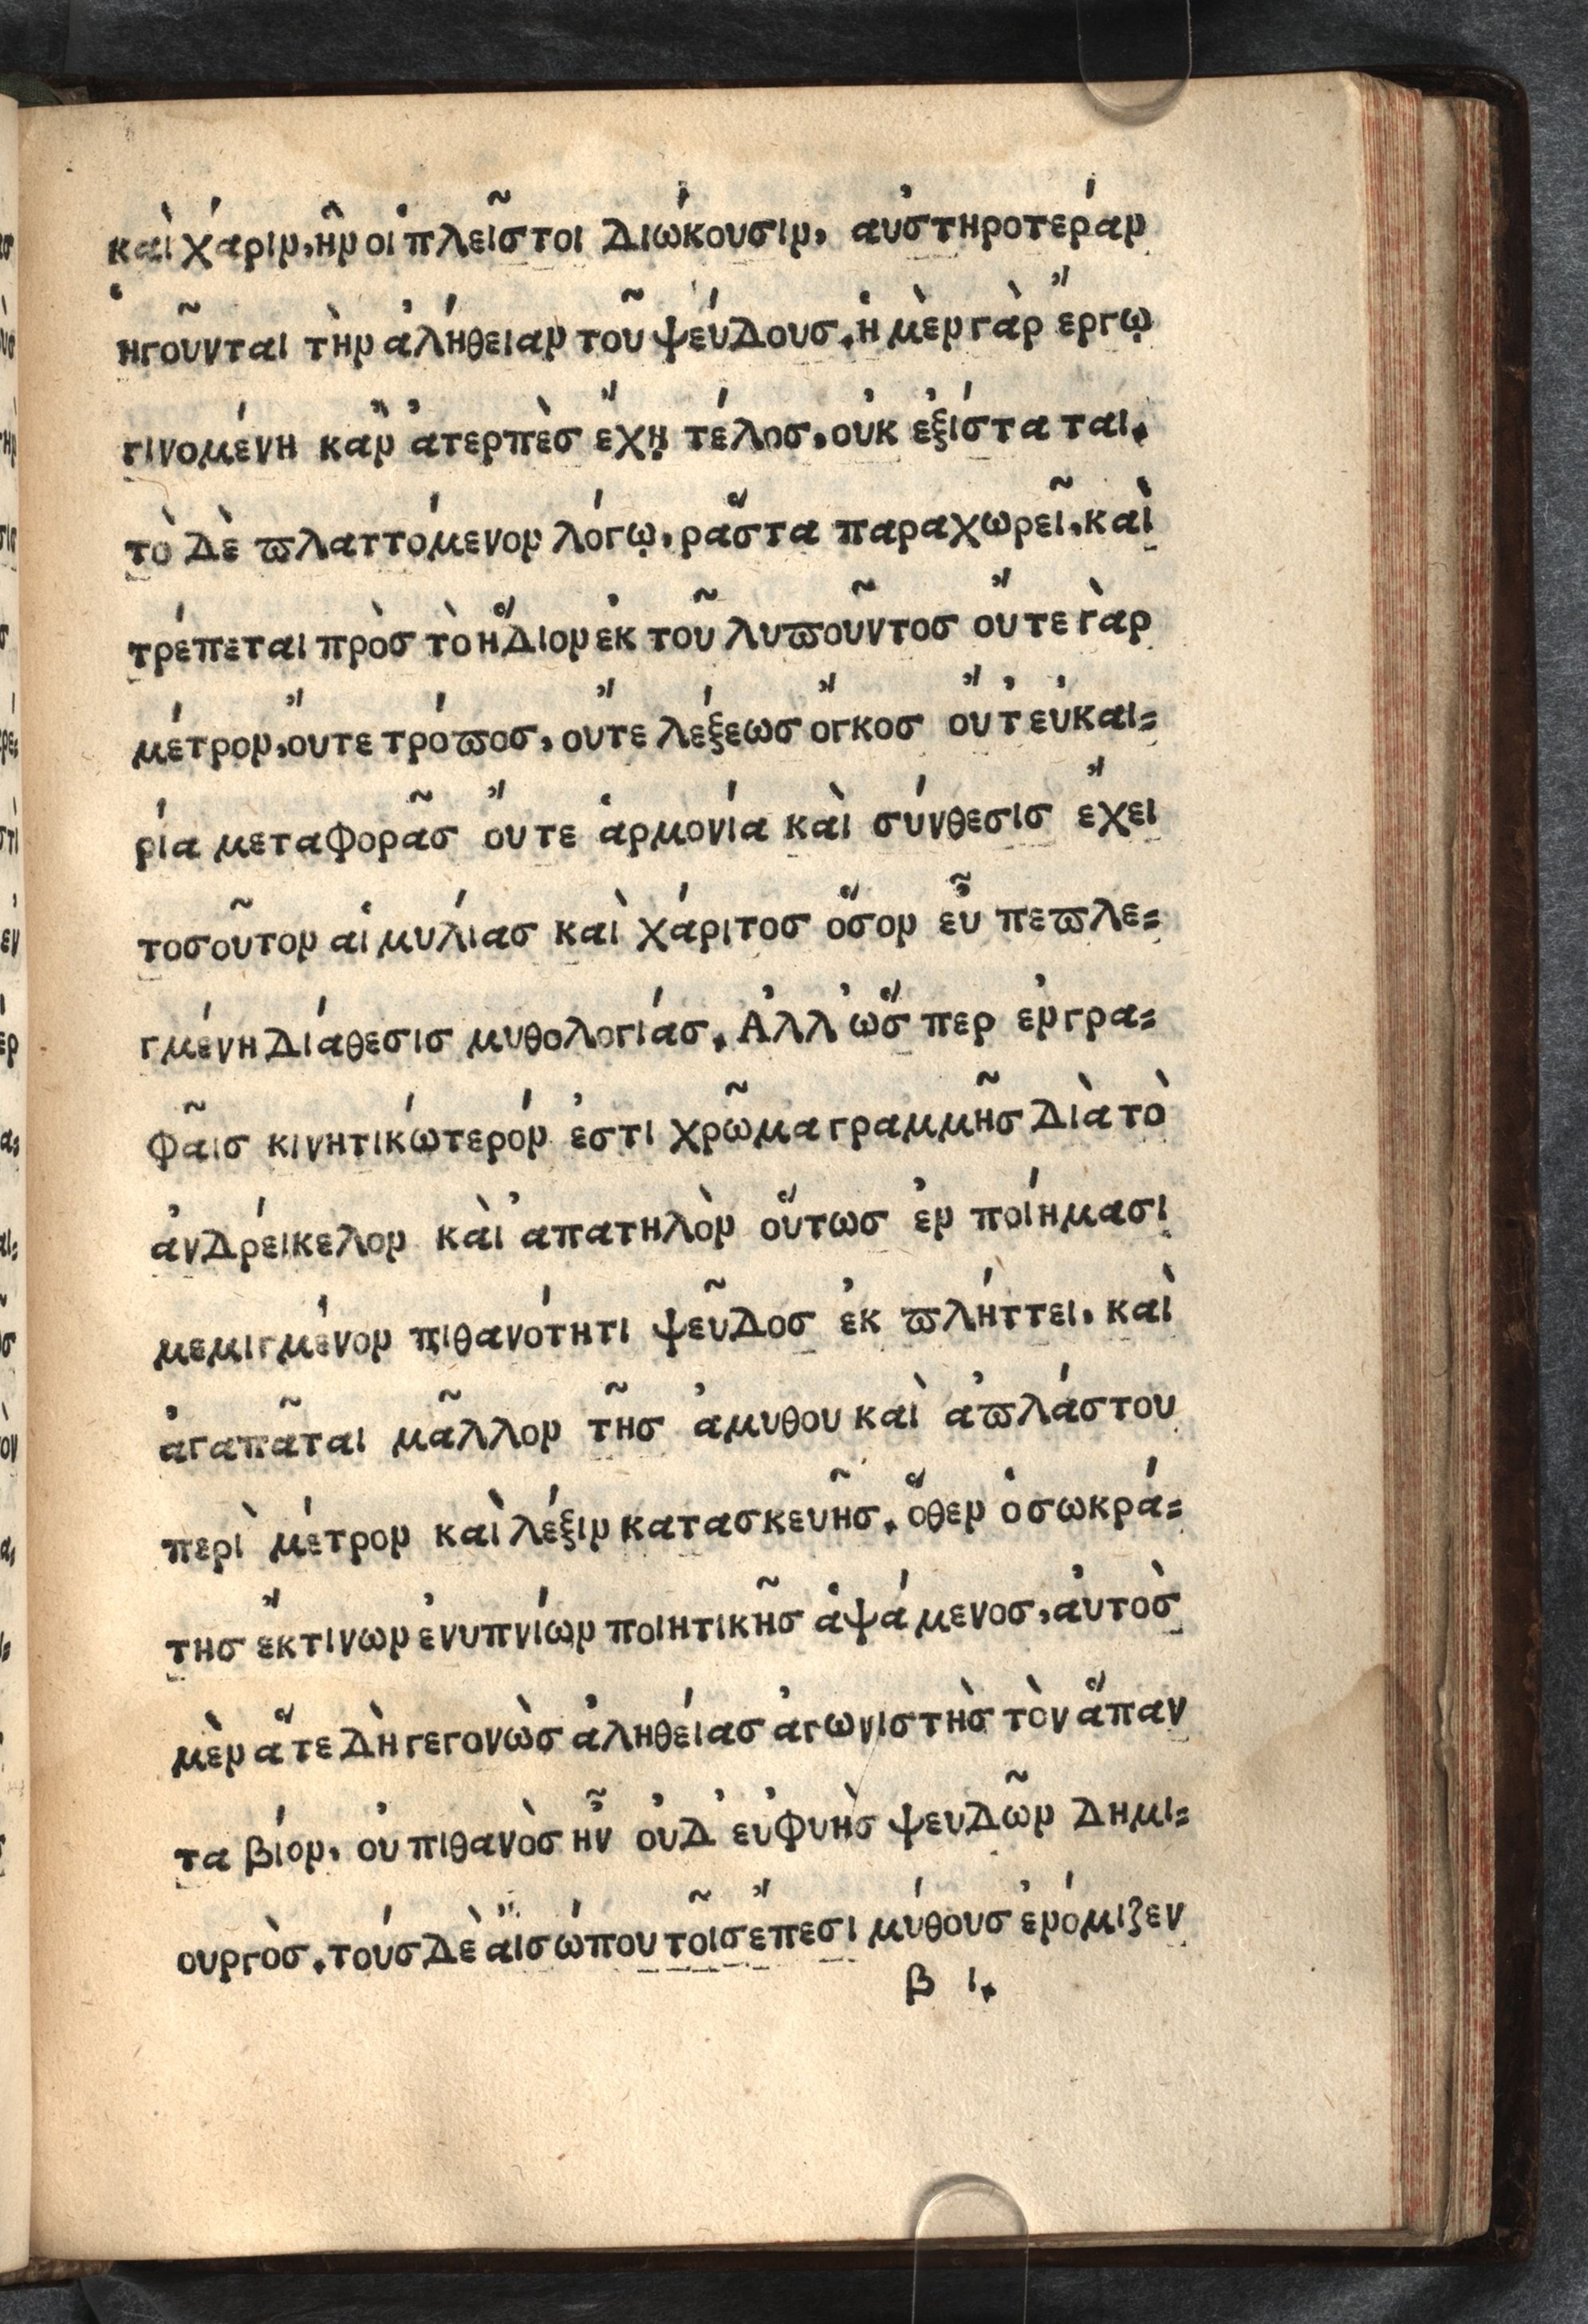 καὶ χάριν, ἣν οἱ πλεῖστοι διώκουσιν, αὐστηροτεράν
ἡγοῦνται τὴν ἀλήθειαν τοῦ ψεύδουσ. ἡ μὲν γὰρ ἔργῳ
γινομένη κἂν ἀτερπὲσ ἔχῃ τέλοσ, οὐκ ἐξίστα ται.
τὸ δὲ πλαττόμενον λόγῳ, ρἅστα παραχωρεῖ, καὶ
τρέπεται πρὸσ τὸ ἥδιον ἐκ τοῦ λυποῦντοσ οὔτε γὰρ
μέτρον, οὔτε τρόποσ, οὔτε λέξεωσ ὄγκοσ οὔτ εὐκαι=
ρία μεταφορᾶσ οὔτε ἁρμονία καὶ σύνθεσισ ἔχει
τοσοῦτον αἱμυλίασ καὶ χάριτοσ ὅσον εὖ πεπλε=
γμένη διάθεσισ μυθολογίασ. Ἀλλ ὥσ περ ἐν γρα=
φᾶισ κινητικώτερόν ἐστι χρῶμα γραμμῆσ διὰ τὸ
ἀνδρείκελον καὶ ἀπατηλὸν οὕτωσ ἐν ποίημασι
μεμιγμένον πιθανότητι ψεῦδοσ ἐκ πλήττει, καὶ
ἀγαπᾶται μᾶλλον τῆσ ἀμυθου καὶ ἀπλάστου
περὶ μέτρον καὶ λέξιν κατασκευῆσ. ὅθεν ὁ σωκρά=
τησ ἔκτινων ἐνυπνίων ποιητικῆσ ἁψάμενοσ, ἀυτὸσ
μὲν ἅτε δὴ γεγονὼσ ἀληθείασ ἀγωνιστὴσ τὸν ἅπαν
τα βίον, οὐ πιθανὸσ ἦν οὐδ εὐφυὴσ ψευδῶν δημι=
ουργὸσ. τούσ δὲ ἀισώπου τοῖσ ἔπεσι μύθουσ ἐνόμιζεν
β ι.